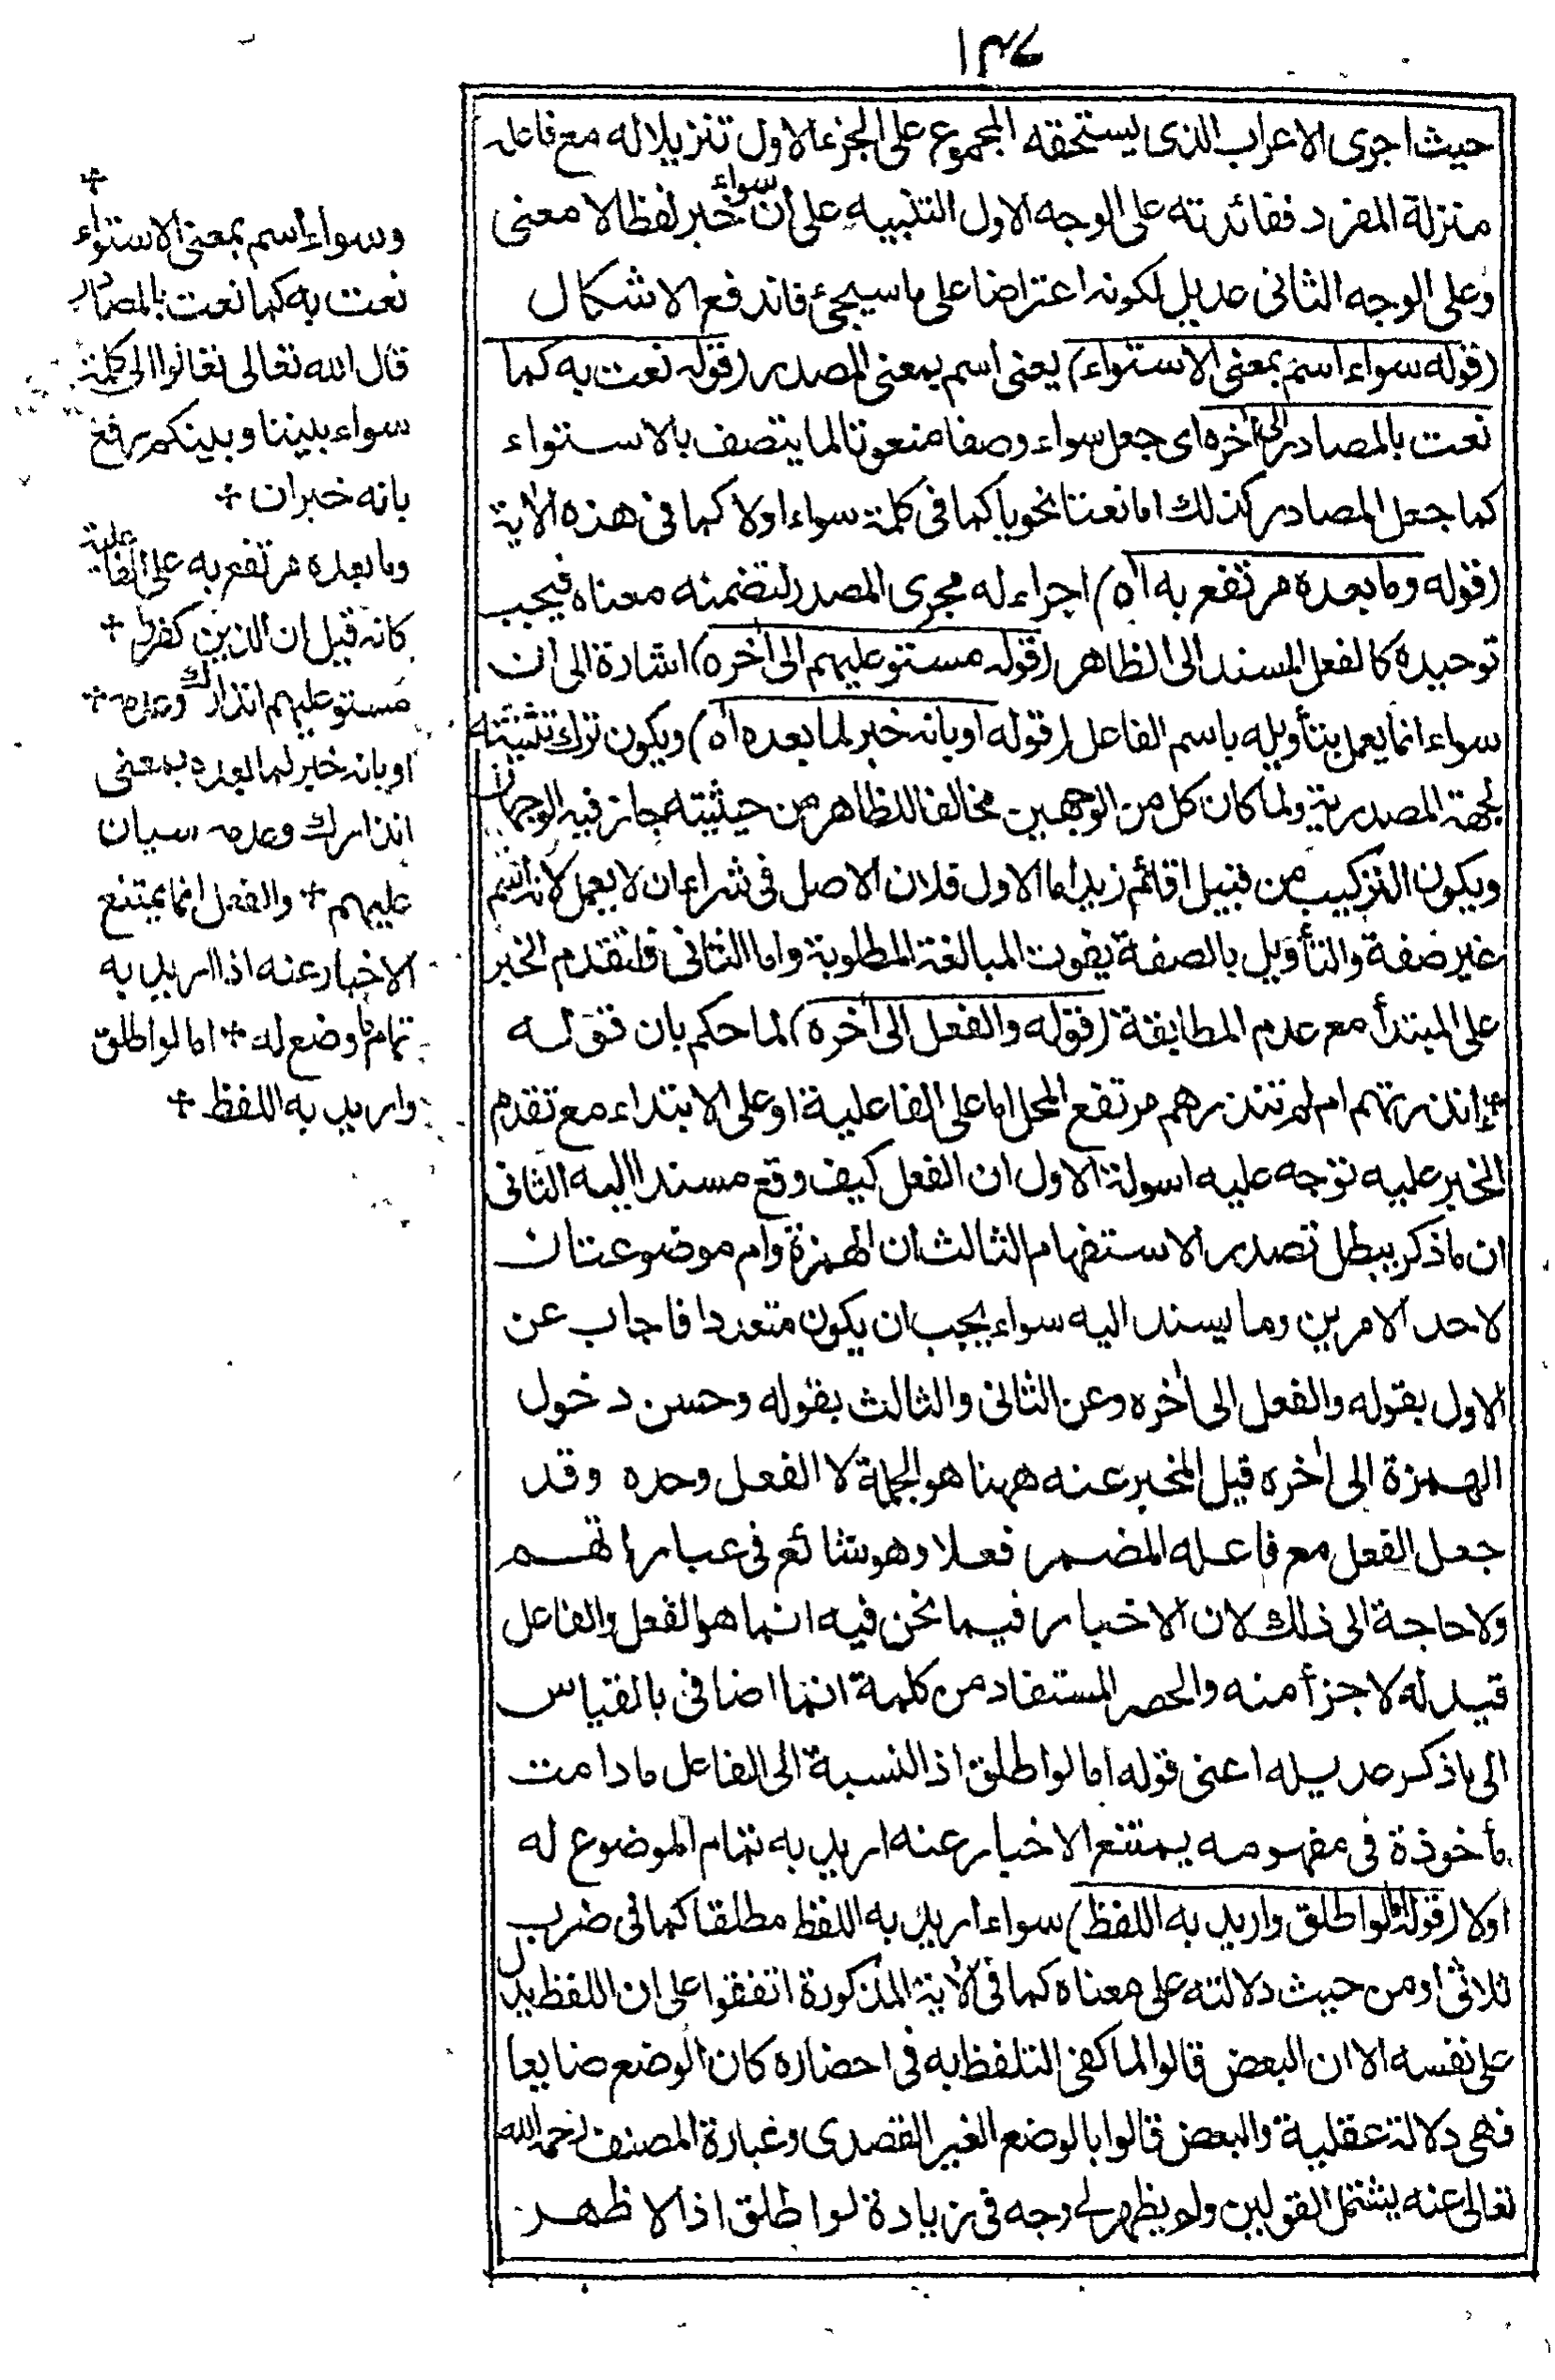 ١٣٤
حيث اجرى الاعراب الذى يستحقه المجموع على الجزء الاول تنزيلا له مع فاعله
منزلة المفرد ففائدته على الوجه الاول التنبيه على ان سواء خبر لفظا لا معنى
وعلى الوجه الثانى عديل لكونه اعتراضا على ما سيجئ فاندفع الاشكال
(قوله سواء اسم بمعنى الاستواء) يعنى اسم بمعنى المصدر (قوله نعت به كما
نعت بالمصادر الى اخره اى جعل سواء وصفا منعوتا لما يتصف بالاستواء
كما جعل المصادر كذلك اما نعتا نحويا كما فى كلمة سواء اولا كما فى هذه الاية
(قوله وما بعده مرتفع به اه) اجراء له مجرى المصدر لتضمنه معناه فيجب
توحيده كالفعل المسند الى الظاهر (قوله مستو عليهم الى اخره) اشارة الى ان
سواء انما يعمل بتأويله باسم الفاعل (قوله او بانه خبر لما بعده اه) ويكون ترك تثنيته
لجهة المصدرية ولما كان كل من الوجهين مخالفا للظاهر من حيثيته جاز فيه الوجهان
ويكون التركيب من قبيل اقائم زيد اما الاول فلان الاصل فى سواء ان لا يعمل لانه اسم
غير صفة والتأويل بالصفة يفوت المبالغة المطلوبة واما الثانى فلتقدم الخبر
على المبتدأ مع عدم المطابقة (قوله والفعل الى اخره) لما حكم بان قوله
ءانذرتهم ام لم تنذرهم مرتفع المحل اما على الفاعلية او على الابتداء مع تقدم
الخبر عليه توجه عليه اسولة الاول ان الفعل كيف وقع مسندا اليه الثانى
ان ما ذكر يبطل تصدير الاستفهام الثالث ان الهمزة وام موضوعتان
لاحد الامرين وما يسند اليه سواء يجب ان يكون متعددا فاجاب عن
الاول بقوله والفعل الى اخره وعن الثانى والثالث بقوله وحسن دخول
الهمزة الى اخره قيل المخبر عنه ههنا هو الجملة لا الفعل وحده وقد
جعل الفعل مع فاعله المضمر فعلا وهو شائع فى عباراتهم
ولا حاجة الى ذلك لان الاخبار فيما نحن فيه انما هو الفعل والفاعل
قيد له لا جزأ منه والحصر المستفاد من كلمة انما اضافى بالقياس
الى ما ذكر عديله اعنى قوله اما لو اطلق اذ النسبة الى الفاعل ما دامت
مأخوذة فى مفهومه يمتنع الاخبار عنه اريد به تمام الموضوع له
اولا (قوله اما لو اطلق واريد به اللفظ) سواء اريد به اللفظ مطلقا كما فى ضرب
ثلاثى او من حيث دلالته على معناه كما فى الاية المذكورة اتفقوا على ان اللفظ يدل
على نفسه الا ان البعض قالوا لما كفى التلفظ به فى احضاره كان الوضع ضايعا
فهى دلالة عقلية والبعض قالوا بالوضع الغير القصدى وعبارة المصنف رحمه الله
تعالى عنه يشتمل القولين ولم يظهر لى وجه فى زيادة لو اطلق اذ الاظهر
وسواء اسم بمعنى الاستواء
نعت به كما نعت بالمصادر
قال الله تعالى تعالوا الى كلمة
سواء بيننا وبينكم رفع
بانه خبر ان
وما بعده مرتفع به على الفاعلية
كانه قيل ان الذين كفروا
مستو عليهم انذارك وعدمه
او بانه خبر لما بعده بمعنى
انذارك وعدمه سيان
عليهم والفعل انما يمتنع
الاخبار عنه اذا اريد به
تمام ما وضع له اما لو اطلق
واريد به اللفظ